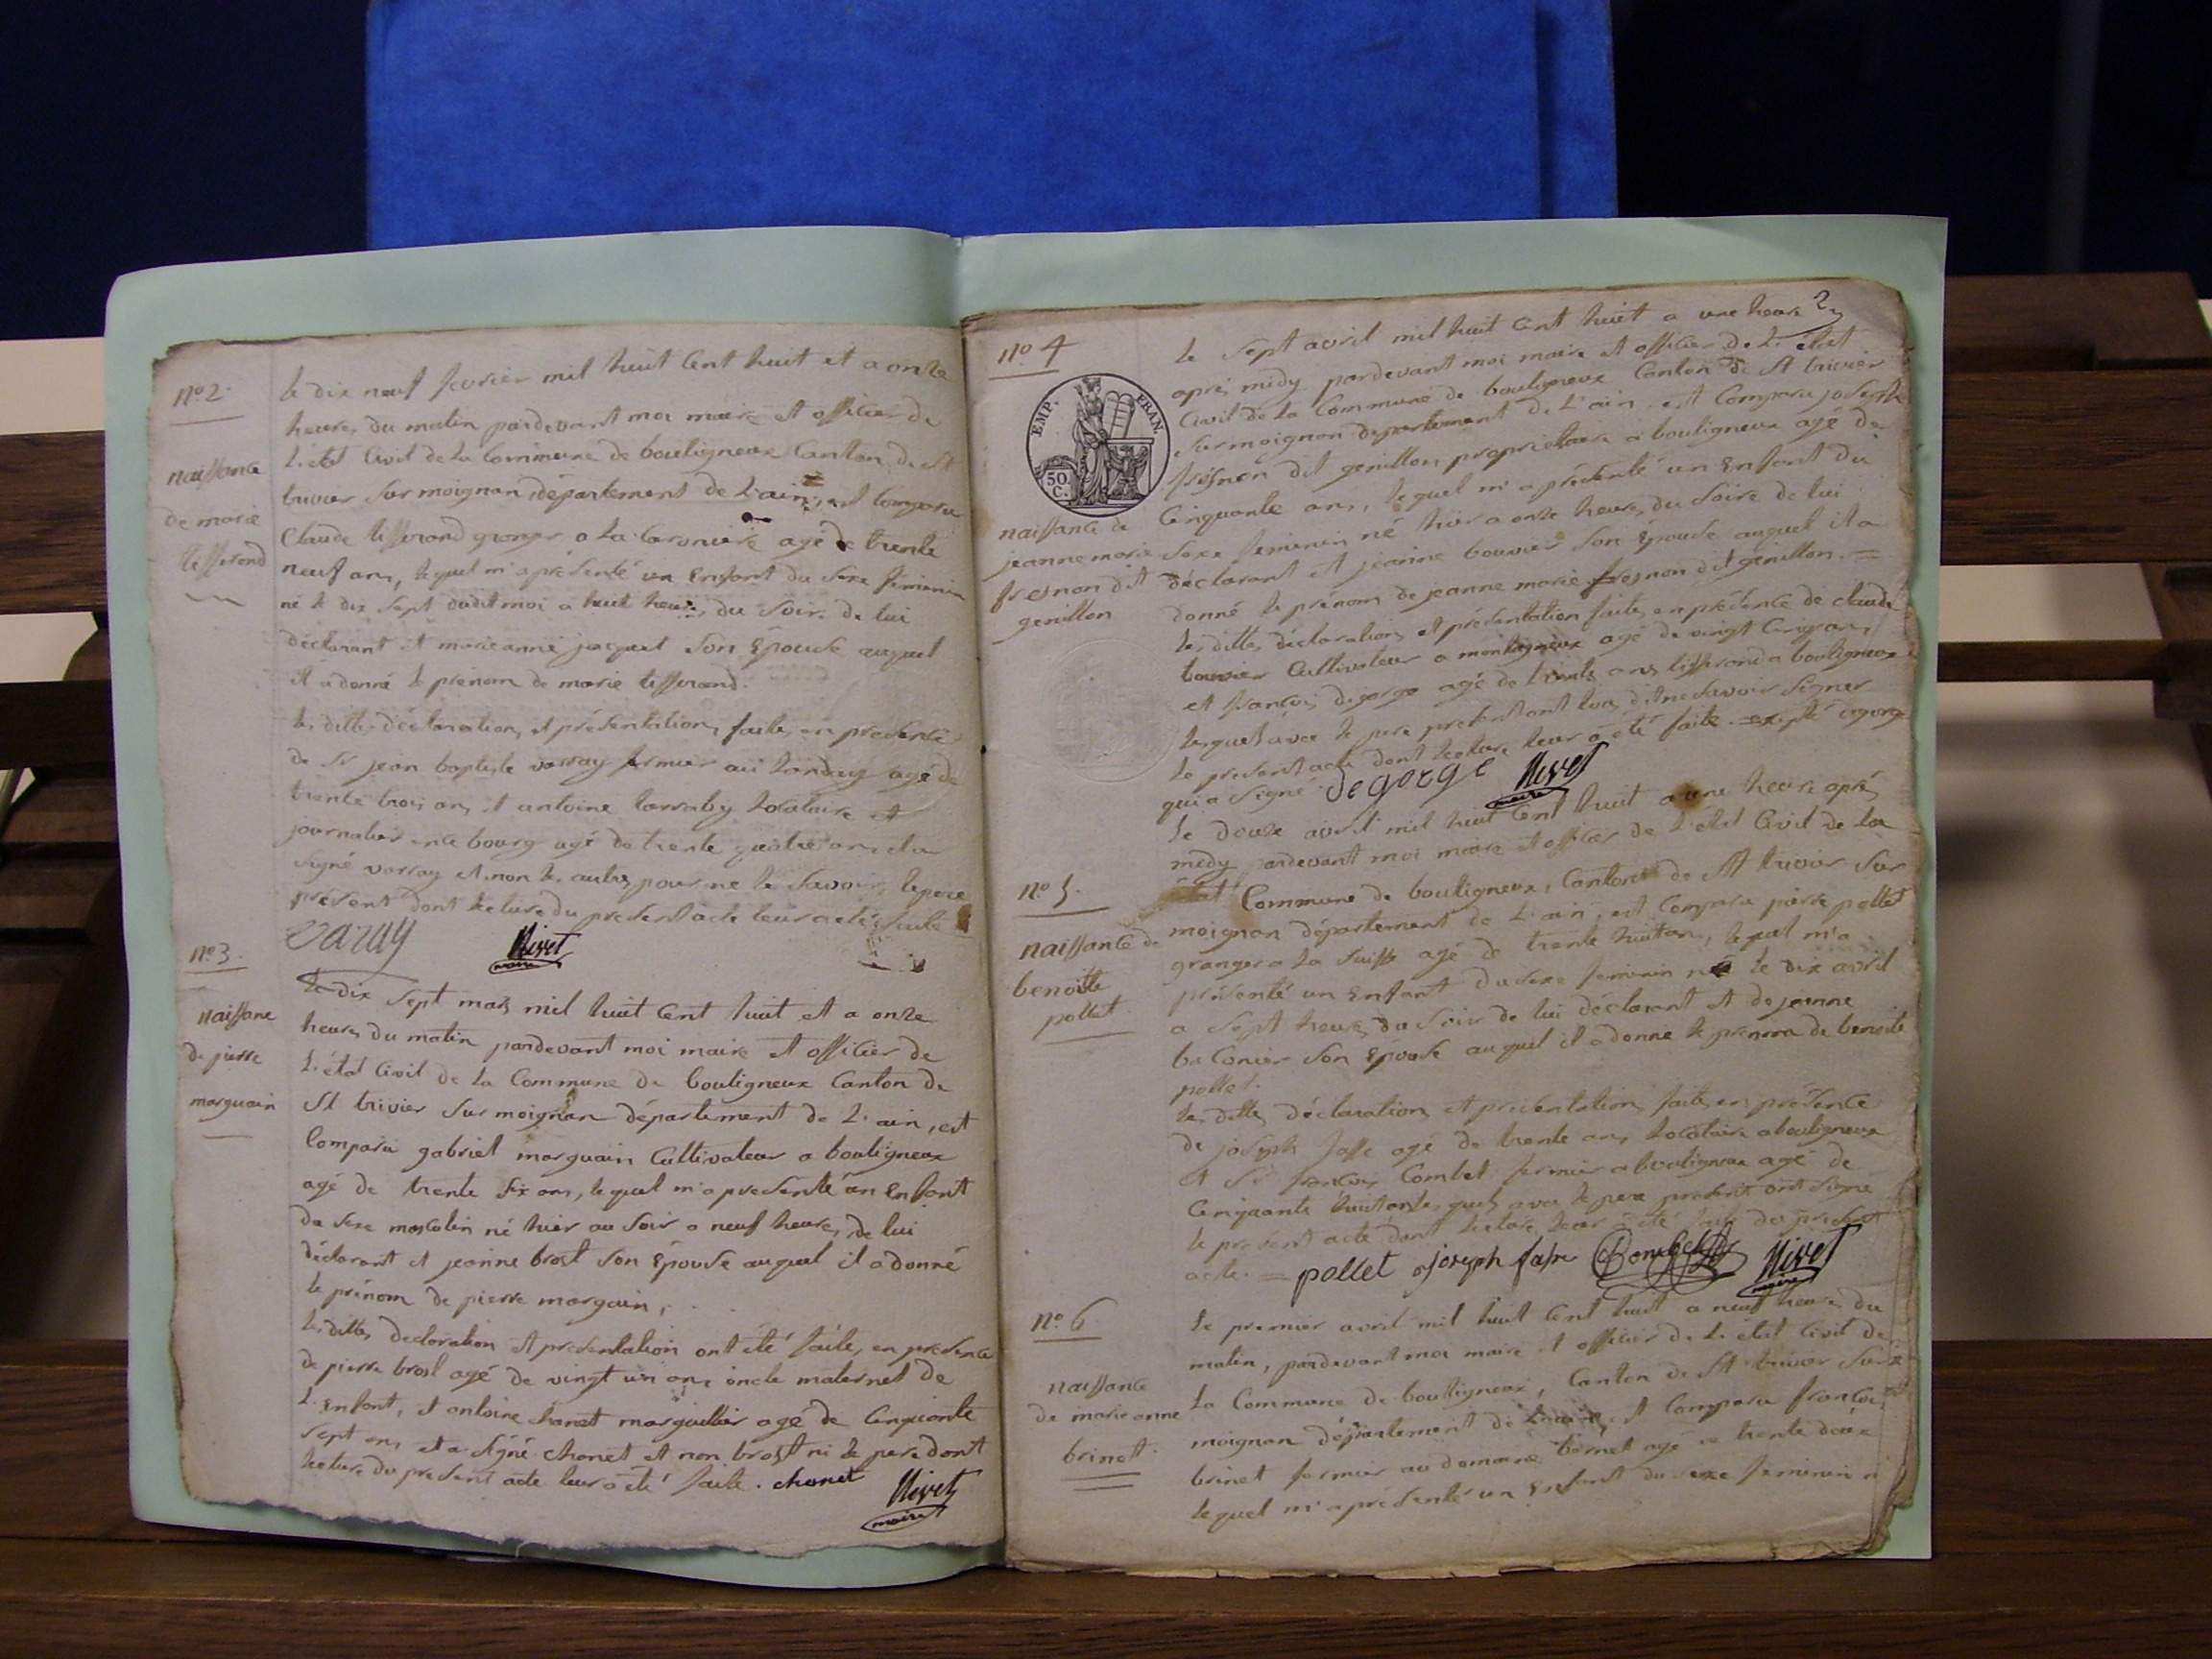 nº 2.
naissance
de marie
tisserand
le dix neuf fevrier mil huit Cent huit et a onze
heures du matin pardevant moi maire et officier de
L'état Civil de la Commune de bouligneux Canton de St
trivier sur moignan département de L'ain, est Comparu
Claude tisserand granger a la agé de trente
neuf ans, lequel m'a présenté un Enfant du Sexe feminin
né le dix sept dudit moi a huit heures du Soir de lui
déclarant et marieanne jacquet Son Epouse auquel
il a donné le prénom de marie tisserand.
les dittes déclaration et présentation faites en presence
de Sr jean baptiste varray fermier au agé de
trente trois ans et antoine locataire et
journalier en ce bourg agé de trente quatre ans et a
Signé varray et non les autres pour ne le Savoir, le pere
présent dont lecture du present acte leur a été faite
varay Nivet
maire
nº 3.
naissane
de pierre
marguain
Le dix Sept mars mil huit Cent huit et a onze
heures du matin pardevant moi maire et officier de
L'état Civil de la Commune de bouligneux Canton de
St trivier Sur moignan département de L'ain, est
Comparu gabriel marguain Cultivateur a bouligneux
agé de trente Six ans, lequel m'a presenté un Enfant
du Sexe masculin né hier au Soir a neuf heures, de lui
déclarant et jeanne brost Son Epouse auquel il a donné
le prénom de pierre margain,
les dittes declaration et presentation ont été faite, en presence
de pierre brost agé de vingt un ans oncle maternel de
L'Enfant, et antoine chanet marguillier agé de Cinquante
Sept ans et a Signé chanet et non brost ni le pere dont
lecture du present acte leur a été faite. chanet Nivet
maire
2
nº 4
EMP. FRAN.
50. C.
naissance de
jeanne marie
fresnon dit
genillon
le Sept avril mil huit Cent huit a une heure
aprés midy pardevant moi maire et officier de L'état
Civil de la Commune de bouligneux Canton de St trivier
Sur moignan département de L'ain, est Comparu joseph
fresnon dit genillon proprietaire a bouligneux agé de
Cinquante ans, lequel m'a présenté un Enfant du
Sexe feminin né hier a onze heures du Soire de lui
déclarant et jeanne bouvier Son Epouse auquel il a
donné le prénom de jeanne marie fresnon dit genillon.
les dittes déclaration et présentation faites en présence de claude
bouvier Cultivateur a agé de vingt Cinq ans
et francois degorge agé de trente ans tisserand a bouligneux
lesquels avec le pere present ont tous dit ne Savoir Signer
le present acte dont lecture leur a été faite excepté degorge
qui a Signé. degorge Nivet
maire
nº 5.
naissance de
benoitte
pollet
le douze avril mil huit Cent huit a une heure aprés
midy pardevant moi maire et officier de L'état Civil de la
Commune de bouligneux, Canton de St trivier Sur
moignan département de L'ain, est Comparu pierre pollet
granger a la Suisse agé de trente huit ans, lequel m'a
présenté un Enfant du Sexe feminin né le dix avril
a Sept heures du Soir de lui déclarant et de jeanne
Son Epouse auquel il a donné le prenom de benoite
pollet.
les dittes déclaration et presentation faites en présence
de joseph agé de trente ans locataire a bouligneux
et Sr francois Combet fermier a bouligneux agé de
Cinquante huit ans lesquels avec le pere présent ont Signé
le present acte dont lecture leur a été faite du present
acte. pollet joseph Combet Nivet
maire
nº 6.
naissance
de marieanne
brinet.
le premier avril mil huit Cent huit a neuf heures du
matin, pardevant moi maire et officier de L'état Civil de
la Commune de bouligneux, Canton de St trivier Sur
moignan département de L'ain, et Comparu francois
brinet fermier au domaine bernet agé de trente deux
lequel m'a présenté un Enfant du sexe feminin né